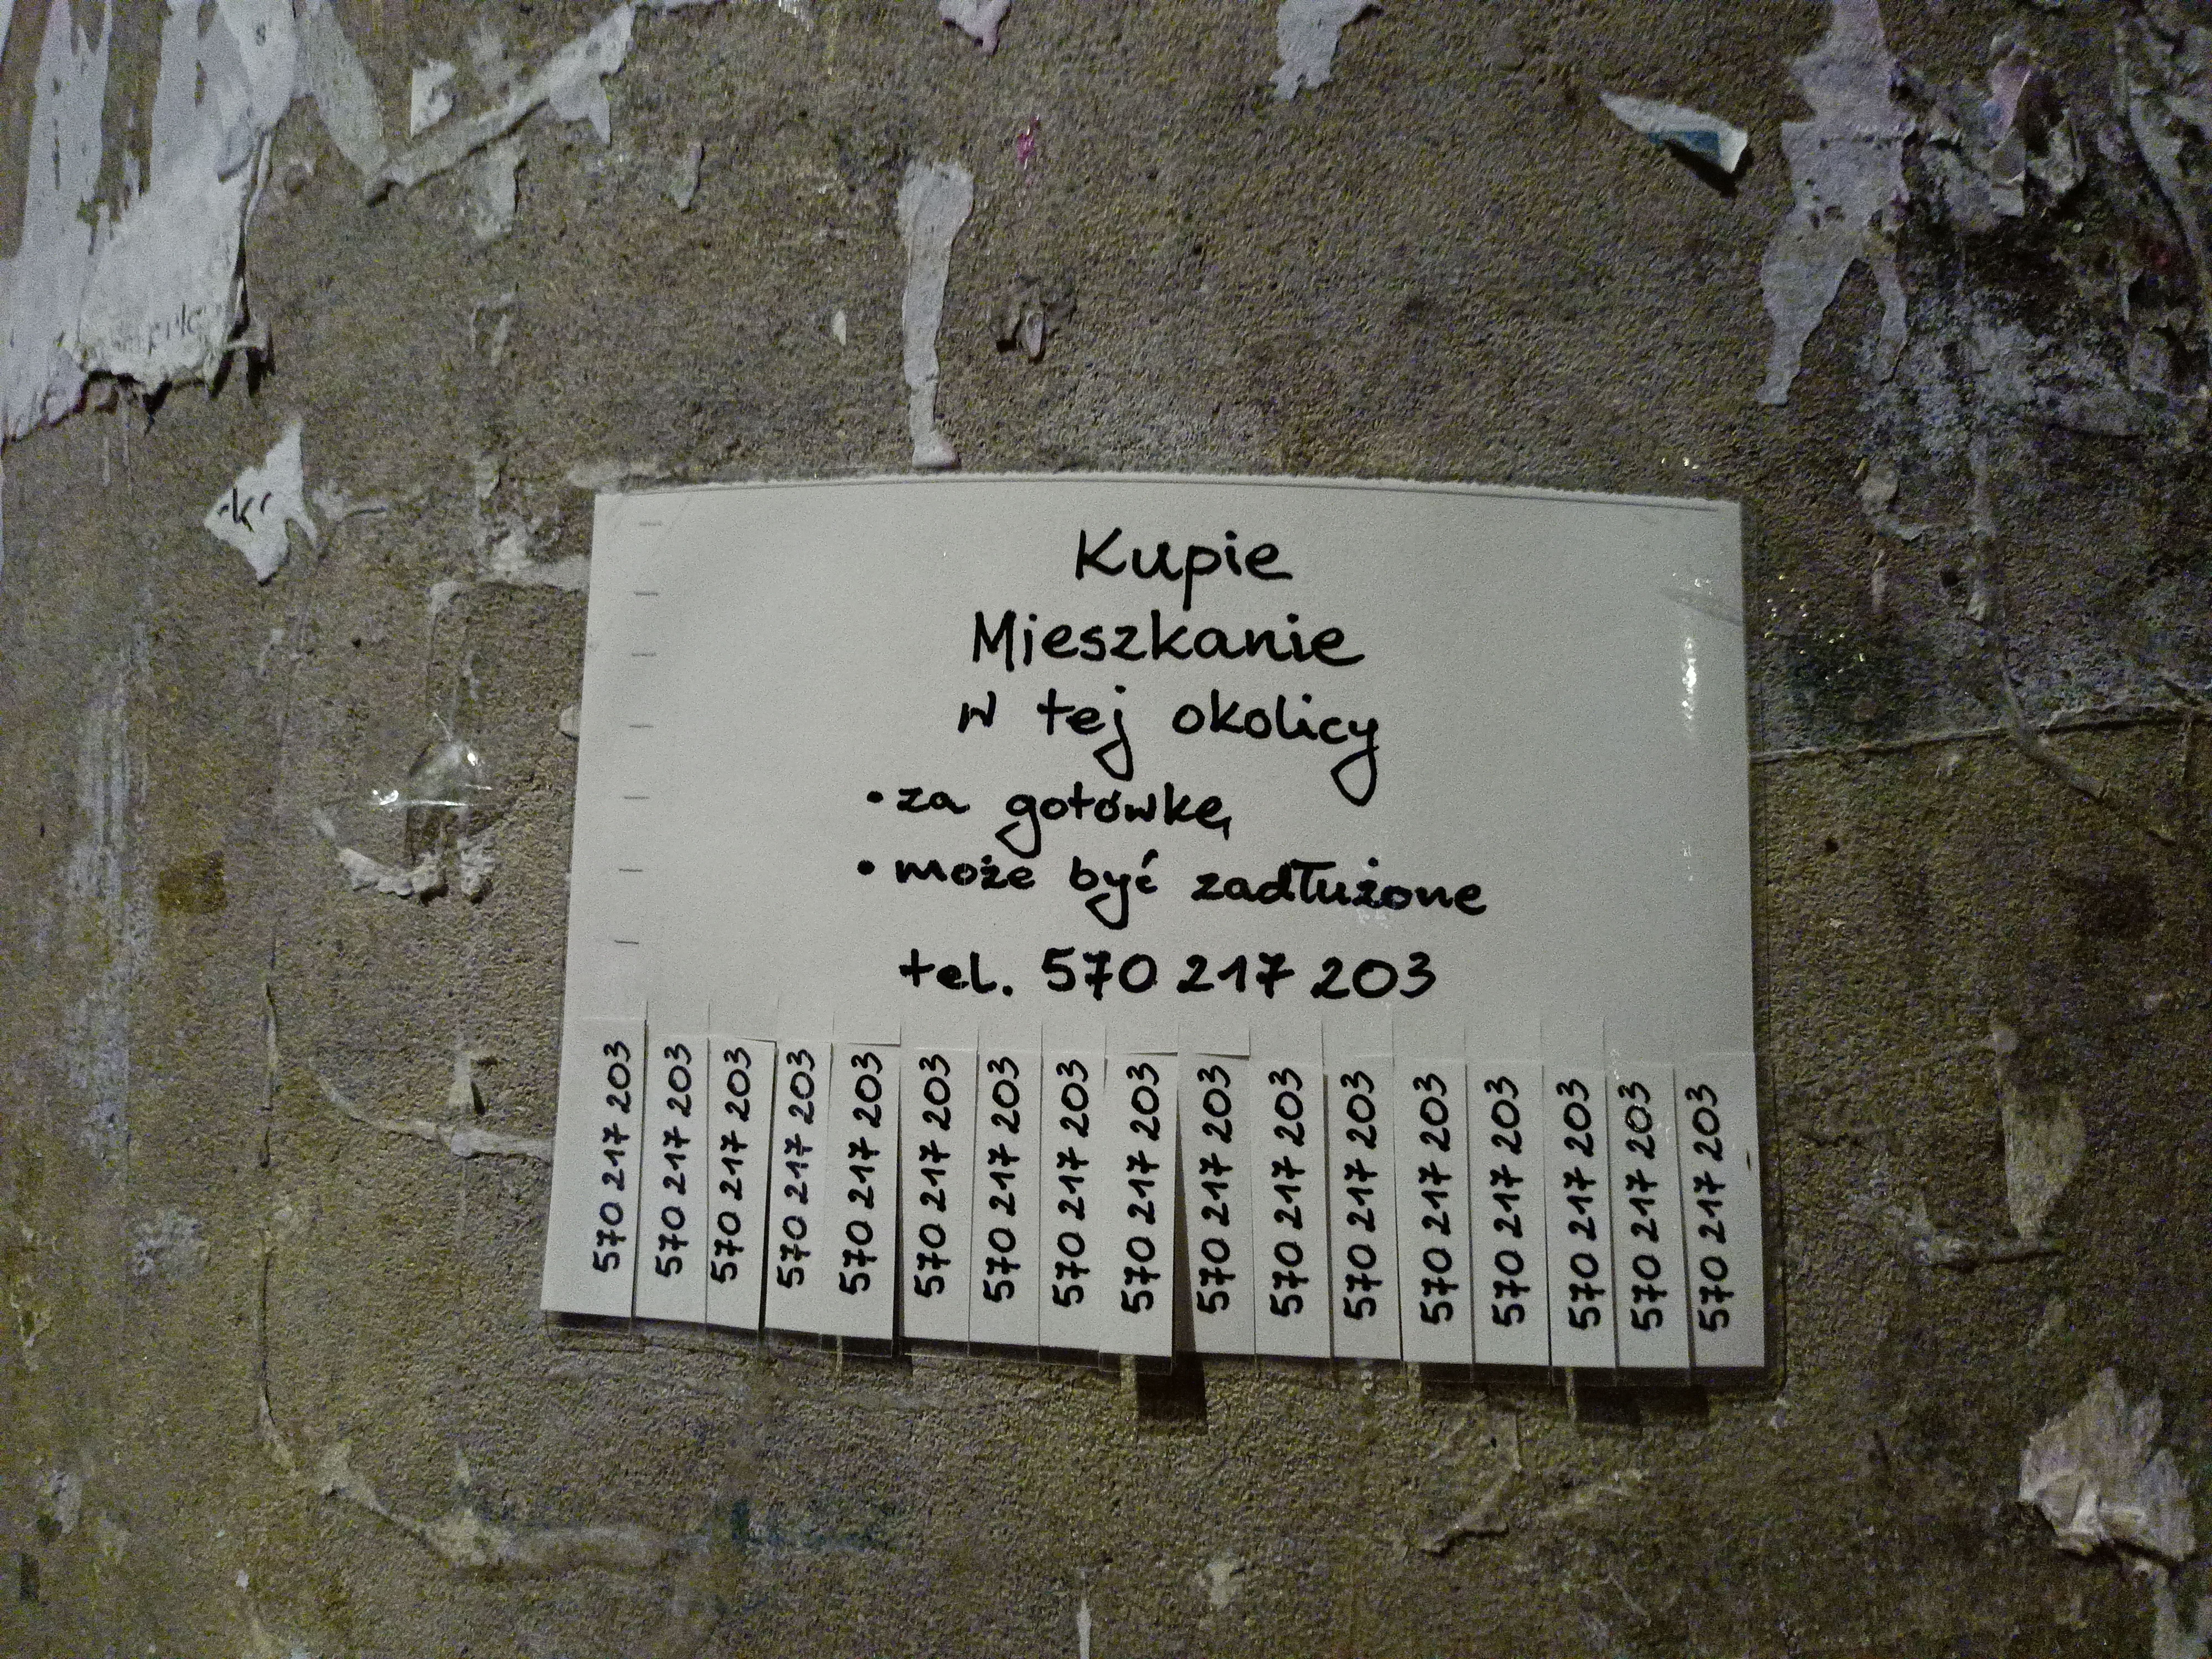 Kupie
Mieszkanie
w tej okolicy
• za gotówkę
• może być zadłużone
tel. 570 217 203
570 217 203
570 217 203
570 217 203
570 217 203
570 217 203
570 217 203
570 217 203
570 217 203
570 217 203
570 217 203
570 217 203
570 217 203
570 217 203
570 217 203
570 217 203
570 217 203
570 217 203